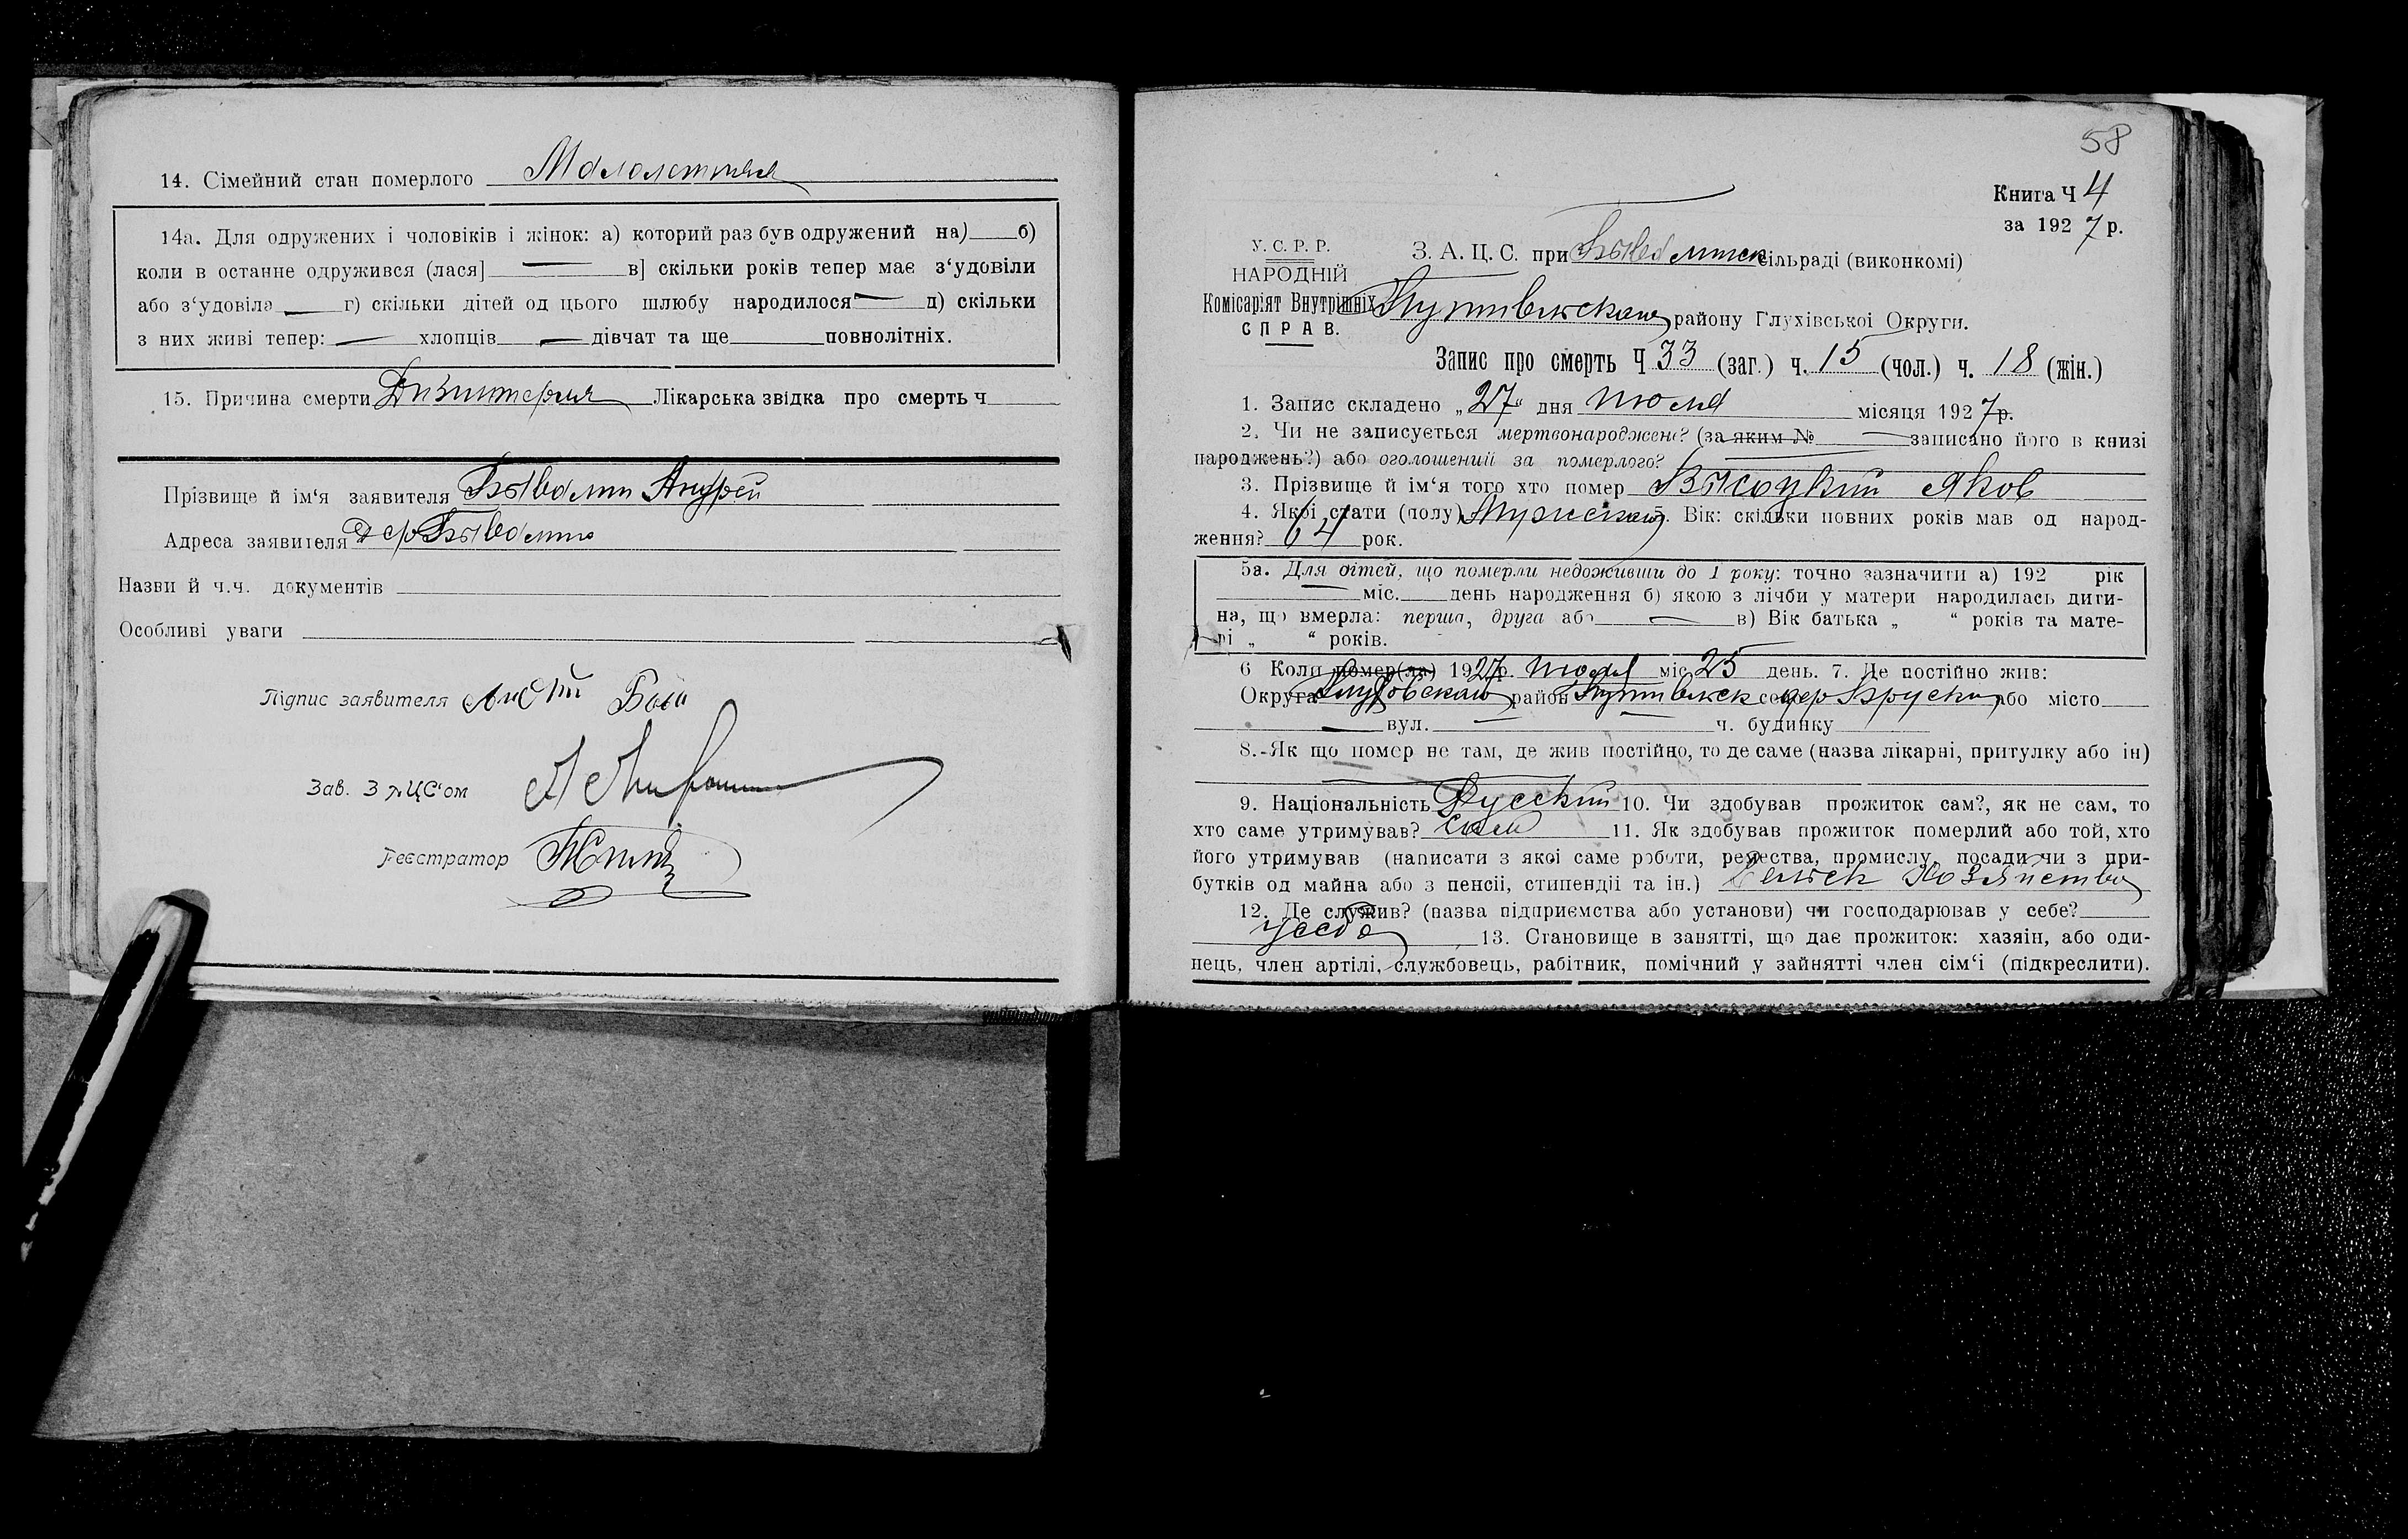 14. Сімейний стан померлого Малолетняя
14а. Для одружених і чоловіків і жінок: а) которий раз був одружений на) б)
коли в останне одружився (лася] в] скільки років тепер має з‘удовіли
або з‘удовіла г) скільки дітей од цього шлюбу народилося д) скільки
з них живі тепер: хлопців дівчат та ще повнолітніх.
15. Причина смерти Дизинтерия Лікарська звідка про смерть ч
Прізвище й ім‘я заявителя Бывалин Андрей
Адреса заявителя дер Бывалино
Назви й ч.ч. документів
Особливі уваги
Підпис заявителя
Зав. ЗАЦС‘ом
Реєстратор
58
Книга Ч 4
за 1927 р.
У. С. Р. Р.
НАРОДНІЙ
Комісаріят Внутрішніх
СПРАВ.
З. А. Ц. С. при сільраді (виконкомі)
Путивльского району Глухівської Округи.
Запис про смерть Ч 33 (заг.) ч. 15 (чол.) ч. 18 (жін.)
1. Запис складено „27“ дня июля місяця 1927р.
2. Чи не записується мертвонароджене? (за яким № записано його в книзі
народжень?) або оголошений за померлого?
3. Прізвище й ім‘я того хто помер Высоцкий Яков
4. Якої стати (полу) Мужского 5. Вік: скільки повних років мав од народ-
ження? 64 рок.
5а. Для дітей, що померли недоживши до 1 року: точно зазначити а) 192 рік
міс. день народження б) якою з лічби у матери народилась дити-
на, що вмерла: перша, друга або в) Вік батька „ “ років та мате-
рі „ “ років.
6 Коли помер(ла) 1927р. июля міс 25 день. 7. Де постійно жив:
Округа Глуховского район Путивльск село дер Бруски або місто
вул. ч. будинку
8.-Як що помер не там, де жив постійно, то де саме (назва лікарні, притулку або ін)
9. Національність Русский 10. Чи здобував прожиток сам?, як не сам, то
хто саме утримував? сам 11. Як здобував прожиток померлий або той, хто
його утримував (написати з якої саме роботи, ремества, промислу, посади чи з при-
бутків од майна або з пенсії, стипендії та ін.) Сельск Хозяйство
12. Де служив? (назва підприємства або установи) чи господарював у себе?
у себя 13. Становище в занятті, що дає прожиток: хазяін, або оди-
нець, член артілі, службовець, рабітник, помічний у зайнятті член сім‘ї (підкреслити).